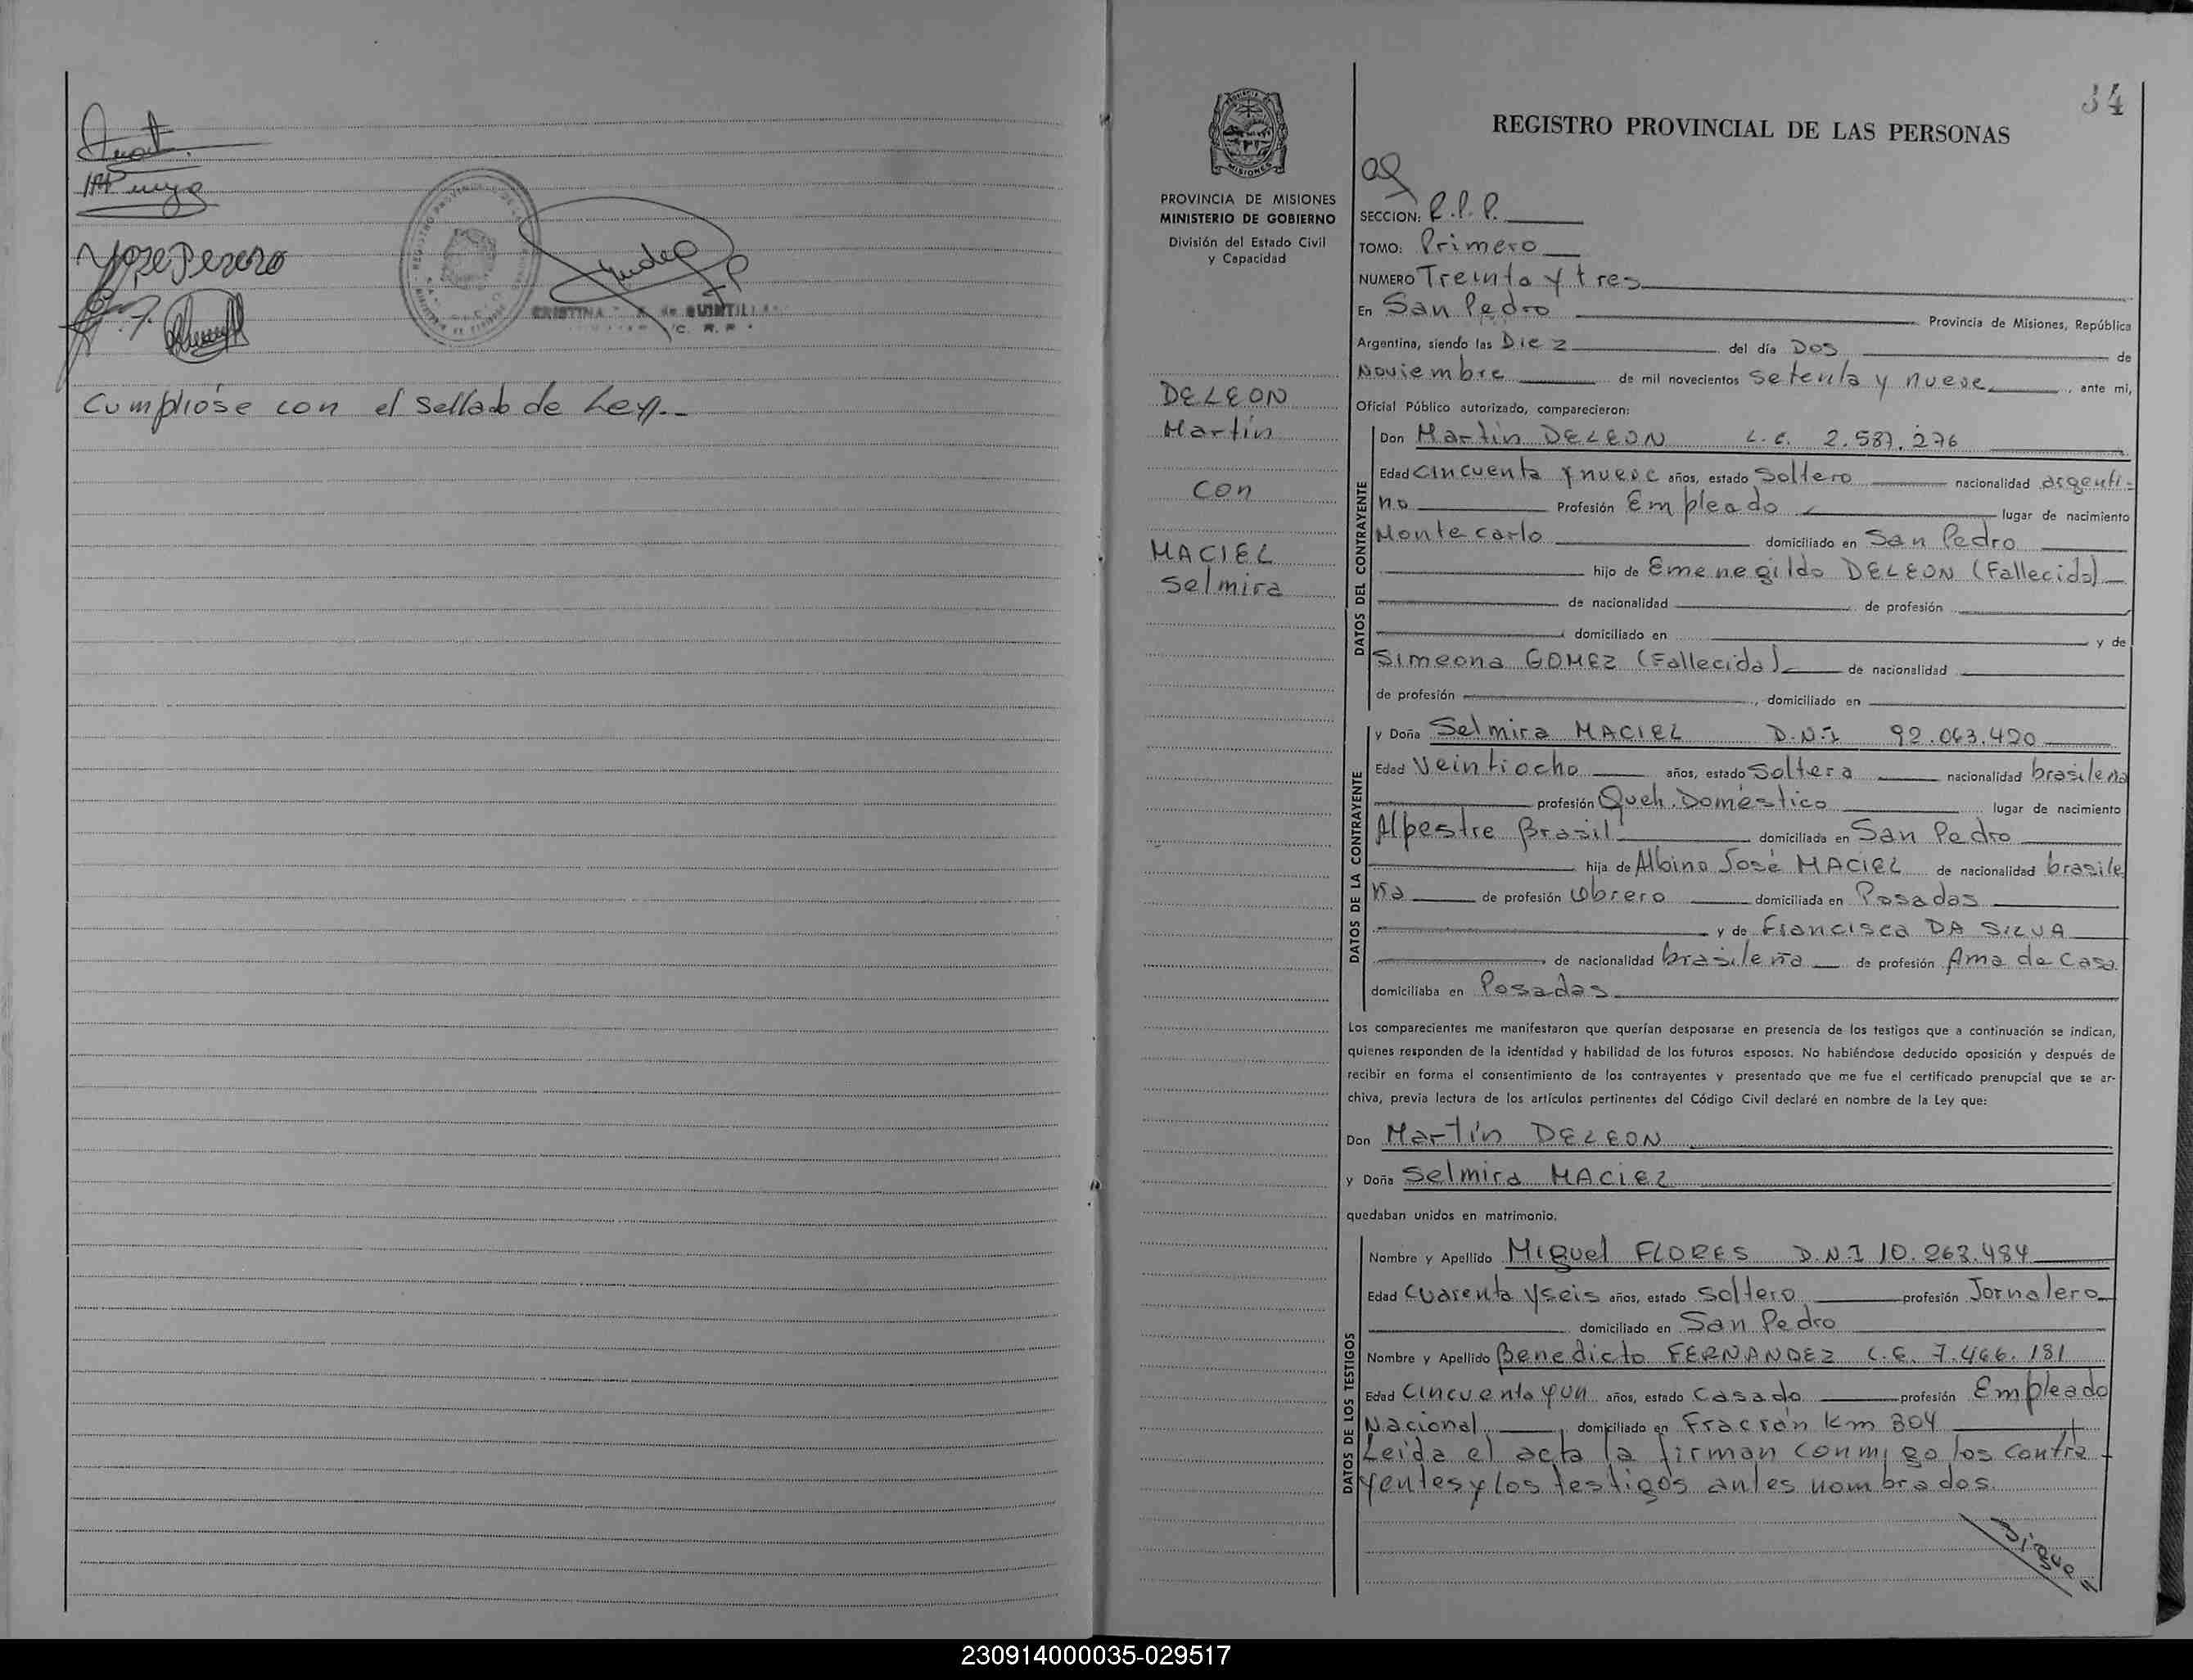 Cumplióse con el sellado de Ley.-
34
REGISTRO PROVINCIAL DE LAS PERSONAS
PROVINCIA DE MISIONES
MINISTERIO DE GOBIERNO
División del Estado Civil
y Capacidad
DELEON
Martín
con
MACIEL
Selmira
SECCION: R.P.P.
TOMO: Primero
NUMERO Treinta y tres
En San Pedro Provincia de Misiones, República
Argentina, siendo las Diez del día Dos de
Noviembre de mil novecientos setenta y nueve, ante mi,
Oficial Público autorizado, comparecieron:
DATOS DEL CONTRAYENTE
Don Martín DELEON L.E. 2.587.276
Edad cincuenta y nueve años, estado Soltero nacionalidad argenti-
no Profesión Empleado lugar de nacimiento
Montecarlo domiciliado en San Pedro
hijo de Emenegildo DELEON (Fallecido)
de nacionalidad de profesión
domiciliado en y de
Simeona GOMEZ (Fallecida) de nacionalidad
de profesión , domiciliado en
DATOS DE LA CONTRAYENTE
y Doña Selmira MACIEL D.N.I 92.063.420
Edad Veintiocho años, estado Soltera nacionalidad brasileña
profesión Queh. Doméstico lugar de nacimiento
Alpestre Brasil domiciliada en San Pedro
hija de Albino José MACIEL de nacionalidad brasile
ña de profesión Obrero domiciliada en Posadas
y de Francisca DA SILVA
de nacionalidad brasileña de profesión Ama de Casa
domiciliaba en Posadas
Los comparecientes me manifestaron que querían desposarse en presencia de los testigos que a continuación se indican,
quienes responden de la identidad y habilidad de los futuros esposos. No habiéndose deducido oposición y después de
recibir en forma el consentimiento de los contrayentes y presentado que me fue el certificado prenupcial que se ar-
chiva, previa lectura de los artículos pertinentes del Código Civil declaré en nombre de la Ley que:
Don Martín DELEON
y Doña Selmira MACIEL
quedaban unidos en matrimonio.
DATOS DE LOS TESTIGOS
Nombre y Apellido Miguel FLORES D.N.I 10.263.484
Edad Cuarenta y seis años, estado soltero profesión Jornalero
domiciliado en San Pedro
Nombre y Apellido Benedicto FERNANDEZ L.E. 7.466.131
Edad Cincuenta y un años, estado casado profesión Empleado
Nacional domiciliado en Fracrán km 304
Leida el acta la firman conmigo los contra
yentes y los testigos antes nombrados.
Sigue //
230914000035-029517